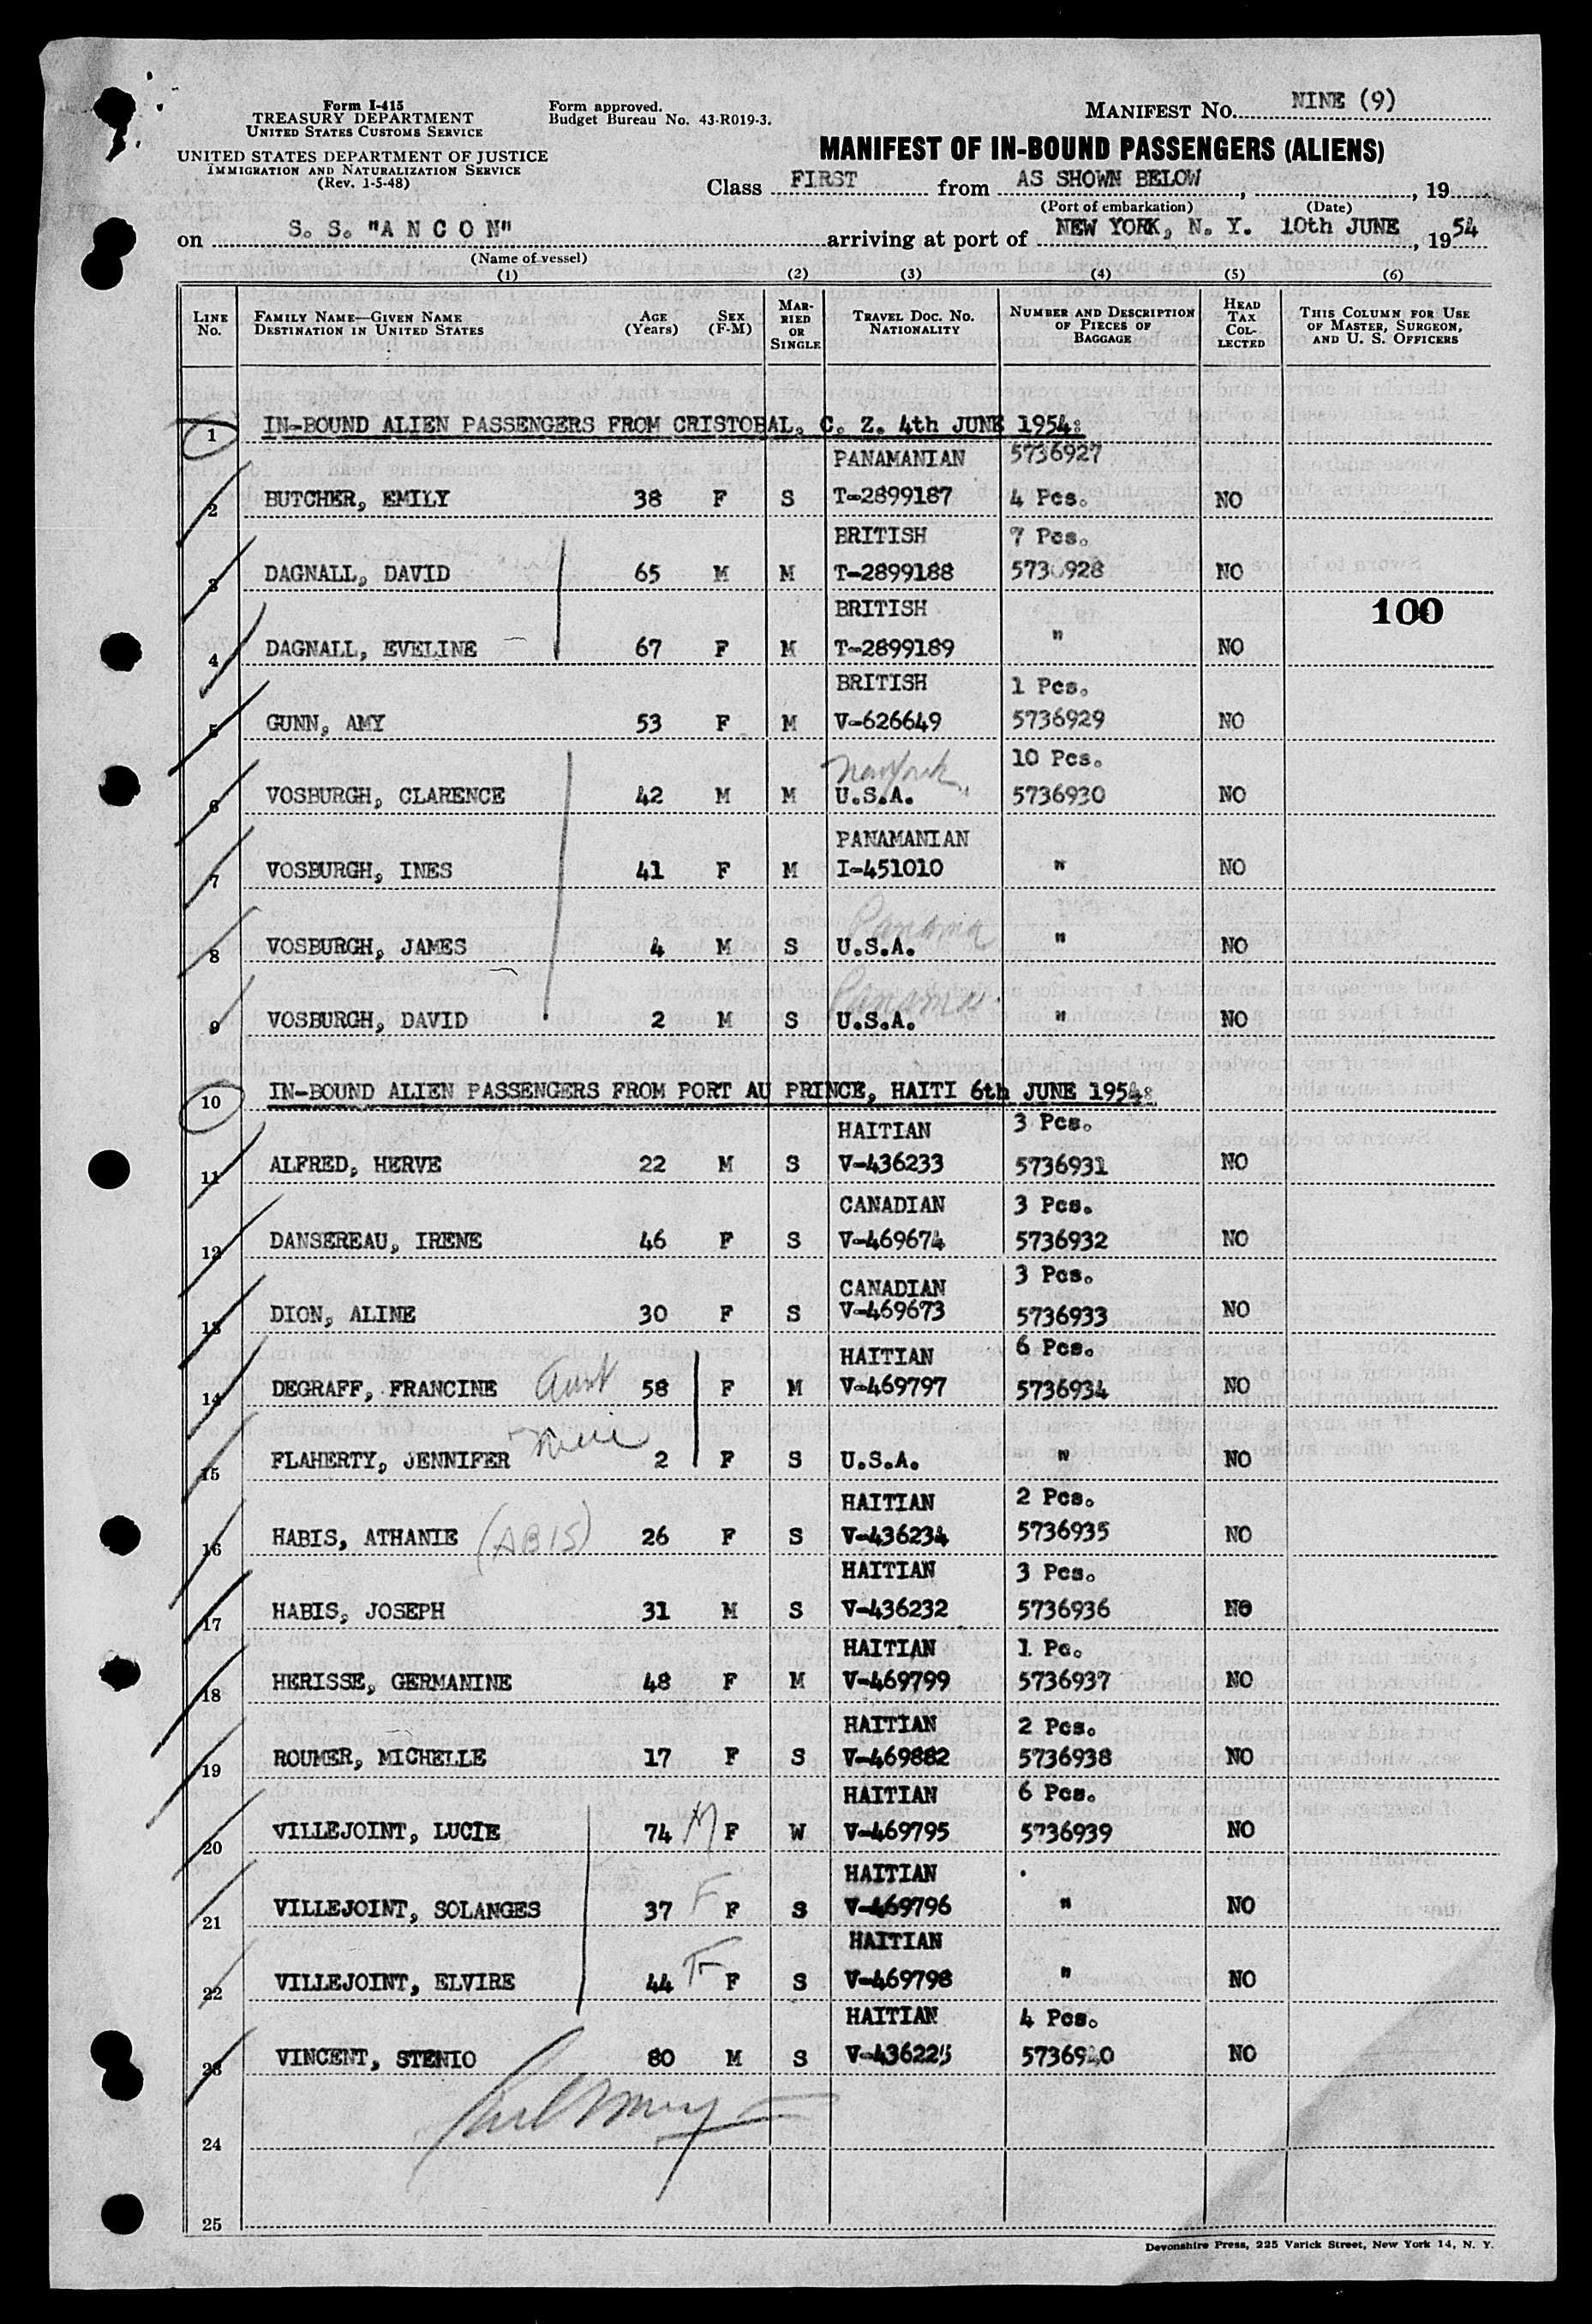 Form I-415
TREASURY DEPARTMENT
UNITED STATES CUSTOMS SERVICE
UNITED STATES DEPARTMENT OF JUSTICE
IMMIGRATION AND NATURALIZATION SERVICE
(Rev. 1-5-48)
Form approved.
Budget Bureau No. 43-R019-3.
MANIFEST NO. NINE (9)
MANIFEST OF IN-BOUND PASSENGERS (ALIENS)
Class FIRST from AS SHOWN BELOW, , 19
(Port of embarkation) (Date)
on S. S. "A N C O N" arriving at port of NEW YORK, N. Y. 10th JUNE, 1954
(Name of vessel)
(1) (2) (3) (4) (5) (6)
LINE No. FAMILY NAME—GIVEN NAME DESTINATION IN UNITED STATES AGE (Years) SEX (F-M) MARRIED OR SINGLE TRAVEL DOC. NO. NATIONALITY NUMBER AND DESCRIPTION OF PIECES OF BAGGAGE HEAD TAX COLLECTED THIS COLUMN FOR USE OF MASTER, SURGEON, AND U. S. OFFICERS
1 IN-BOUND ALIEN PASSENGERS FROM CRISTOBAL, C. Z. 4th JUNE 1954:
PANAMANIAN 5736927
2 BUTCHER, EMILY 38 F S T-2899187 4 Pcs. NO
BRITISH 7 Pcs.
3 DAGNALL, DAVID 65 M M T-2899188 5736928 NO
BRITISH 100
4 DAGNALL, EVELINE 67 F M T-2899189 " NO
BRITISH 1 Pcs.
5 GUNN, AMY 53 F M V-626649 5736929 NO
New York 10 Pcs.
6 VOSBURGH, CLARENCE 42 M M U.S.A. 5736930 NO
PANAMANIAN
7 VOSBURGH, INES 41 F M I-451010 " NO
Panama
8 VOSBURGH, JAMES 4 M S U.S.A. " NO
Panama
9 VOSBURGH, DAVID 2 M S U.S.A. " NO
10 IN-BOUND ALIEN PASSENGERS FROM PORT AU PRINCE, HAITI 6th JUNE 1954:
HAITIAN 3 Pcs.
11 ALFRED, HERVE 22 M S V-436233 5736931 NO
CANADIAN 3 Pcs.
12 DANSEREAU, IRENE 46 F S V-469674 5736932 NO
CANADIAN 3 Pcs.
13 DION, ALINE 30 F S V-469673 5736933 NO
HAITIAN 6 Pcs.
14 DEGRAFF, FRANCINE Aunt 58 F M V-469797 5736934 NO
15 FLAHERTY, JENNIFER 2 F S U.S.A. " NO
HAITIAN 2 Pcs.
16 HABIS, ATHANIE (ABIS) 26 F S V-436234 5736935 NO
HAITIAN 3 Pcs.
17 HABIS, JOSEPH 31 M S V-436232 5736936 NO
HAITIAN 1 Pc.
18 HERISSE, GERMANINE 48 F M V-469799 5736937 NO
HAITIAN 2 Pcs.
19 ROUMER, MICHELLE 17 F S V-469882 5736938 NO
HAITIAN 6 Pcs.
20 VILLEJOINT, LUCIE 74 M F W V-469795 5736939 NO
HAITIAN
21 VILLEJOINT, SOLANGES 37 F F S V-469796 " NO
HAITIAN
22 VILLEJOINT, ELVIRE 44 F F S V-469798 " NO
HAITIAN 4 Pcs.
23 VINCENT, STENIO 80 M S V-436225 5736940 NO
24
25
Devonshire Press, 225 Varick Street, New York 14, N. Y.